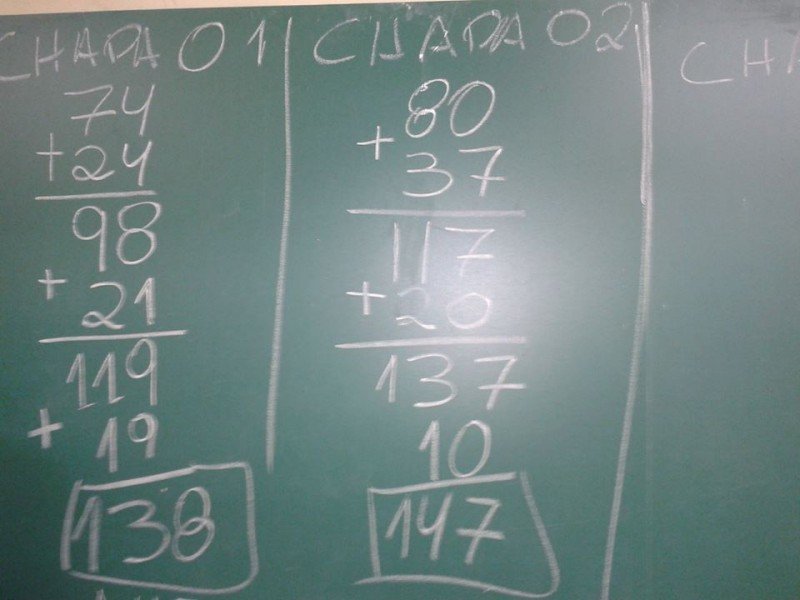 CHAPA 01
74
+24
98
+21
119
+19
138
CHAPA 02
80
+37
117
+20
137
10
147
CHA